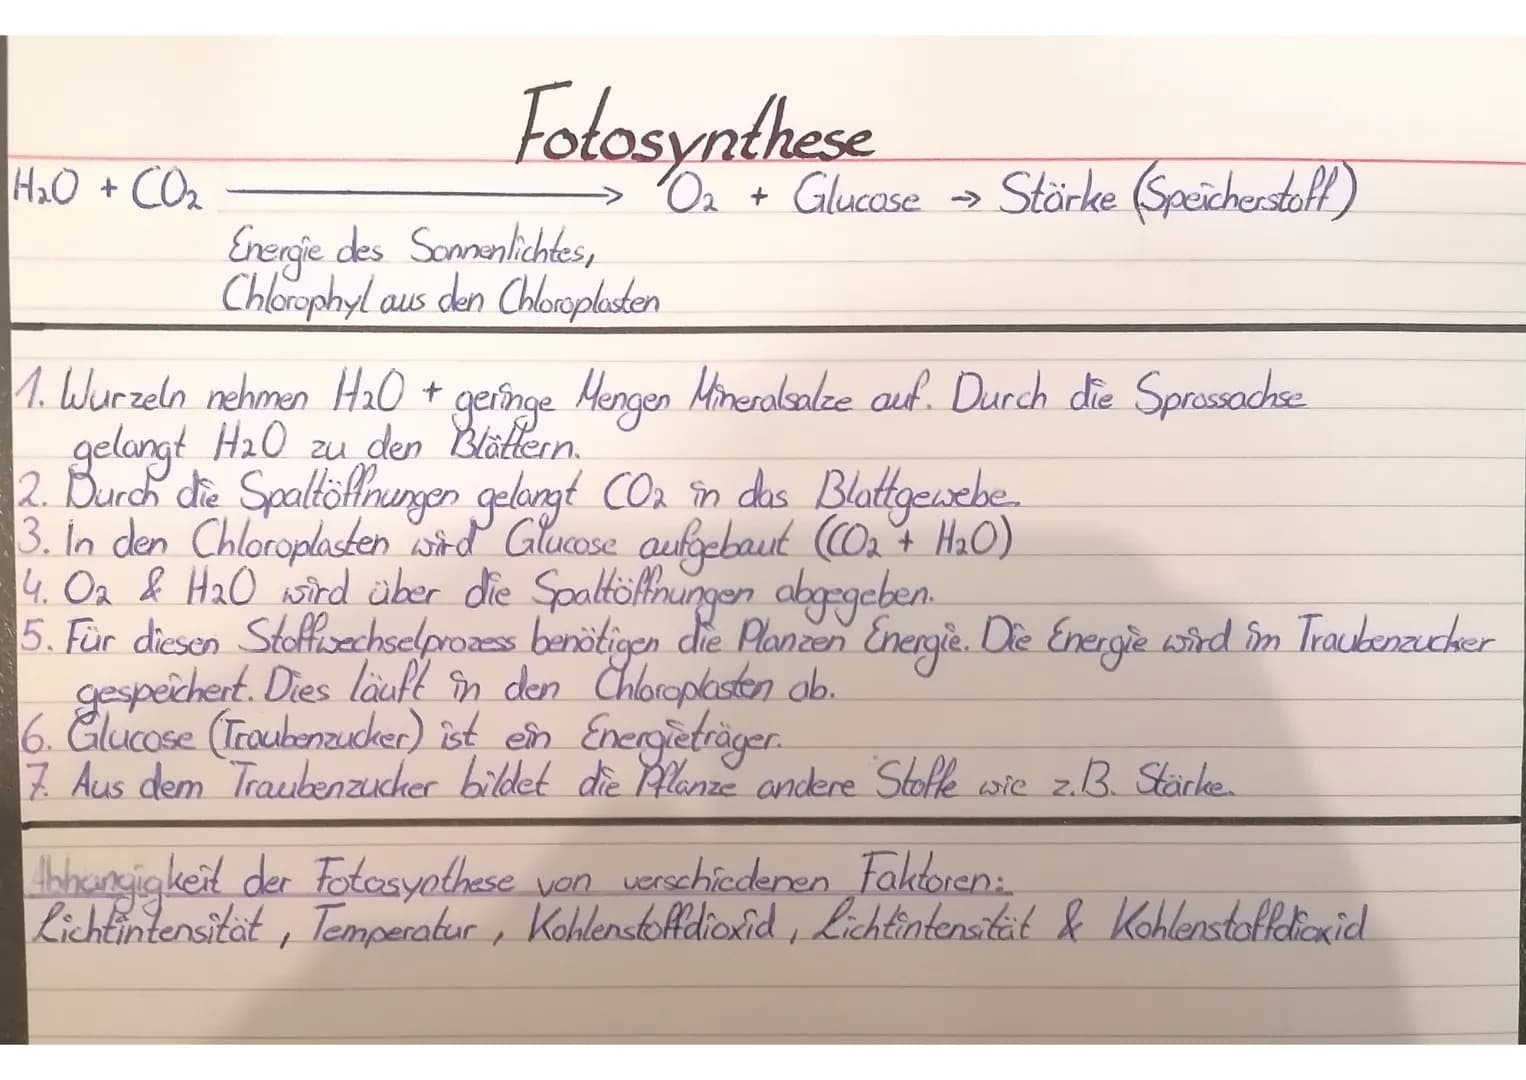 Fotosynthese
H₂O + CO₂ → O₂ + Glucose → Stärke (Speicherstoff)
Energie des Sonnenlichtes,
Chlorophyl aus den Chloroplasten
1. Wurzeln nehmen H₂O + geringe Mengen Mineralsalze auf. Durch die Sprossachse
gelangt H₂O zu den Blättern.
2. Durch die Spaltöffnungen gelangt CO₂ in das Blattgewebe.
3. In den Chloroplasten wird Glucose aufgebaut (CO₂ + H₂O)
4. O₂ & H₂O wird über die Spaltöffnungen abgegeben.
5. Für diesen Stoffwechselprozess benötigen die Planzen Energie. Die Energie wird im Traubenzucker
gespeichert. Dies läuft in den Chloroplasten ab.
6. Glucose (Traubenzucker) ist ein Energieträger.
7. Aus dem Traubenzucker bildet die Pflanze andere Stoffe wie z.B. Stärke.
Abhängigkeit der Fotosynthese von verschiedenen Faktoren:
Lichtintensität, Temperatur, Kohlenstoffdioxid, Lichtintensität & Kohlenstoffdioxid